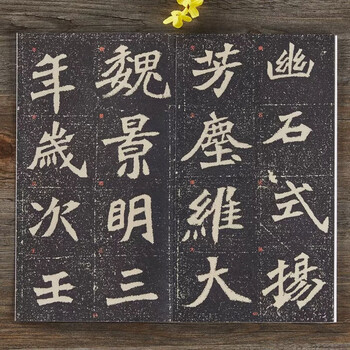 幽石式揚
芳塵維大
魏景明三
年歲次壬